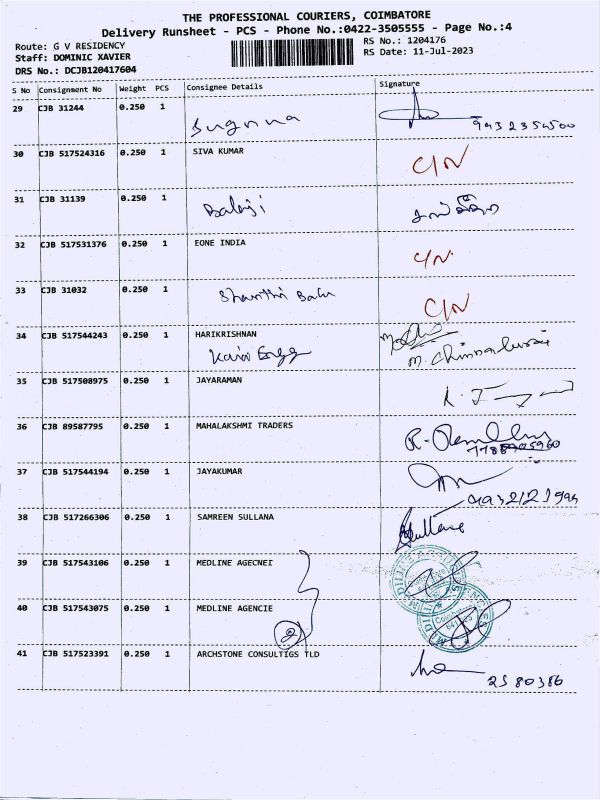 THE PROFESSIONAL COURIERS, COIMBATORE
Delivery Runsheet - PCS - Phone No.:0422-3505555 - Page No.:4
Route: G V RESIDENCY
RS No.: 1204176
Staff: DOMINIC XAVIER
RS Date: 11-Jul-2023
DRS No.: DCJB120417604
S No Consignment No Weight PCS Consignee Details Signature
29 CJB 31244 0.250 1 Suguna
30 CJB 517524316 0.250 1 SIVA KUMAR C/N
31 CJB 31139 0.250 1 Balaji
32 CJB 517531376 0.250 1 EONE INDIA C/N.
33 CJB 31032 0.250 1 Shanthi Balu C/N
34 CJB 517544243 0.250 1 HARIKRISHNAN
M. Chinnadurai
35 CJB 517508975 0.250 1 JAYARAMAN
36 CJB 89587795 0.250 1 MAHALAKSHMI TRADERS
37 CJB 517544194 0.250 1 JAYAKUMAR
38 CJB 517266306 0.250 1 SAMREEN SULLANA Sultana
39 CJB 517543106 0.250 1 MEDLINE AGECNEI
40 CJB 517543075 0.250 1 MEDLINE AGENCIE
2
41 CJB 517523391 0.250 1 ARCHSTONE CONSULTIGS TLD
2580386